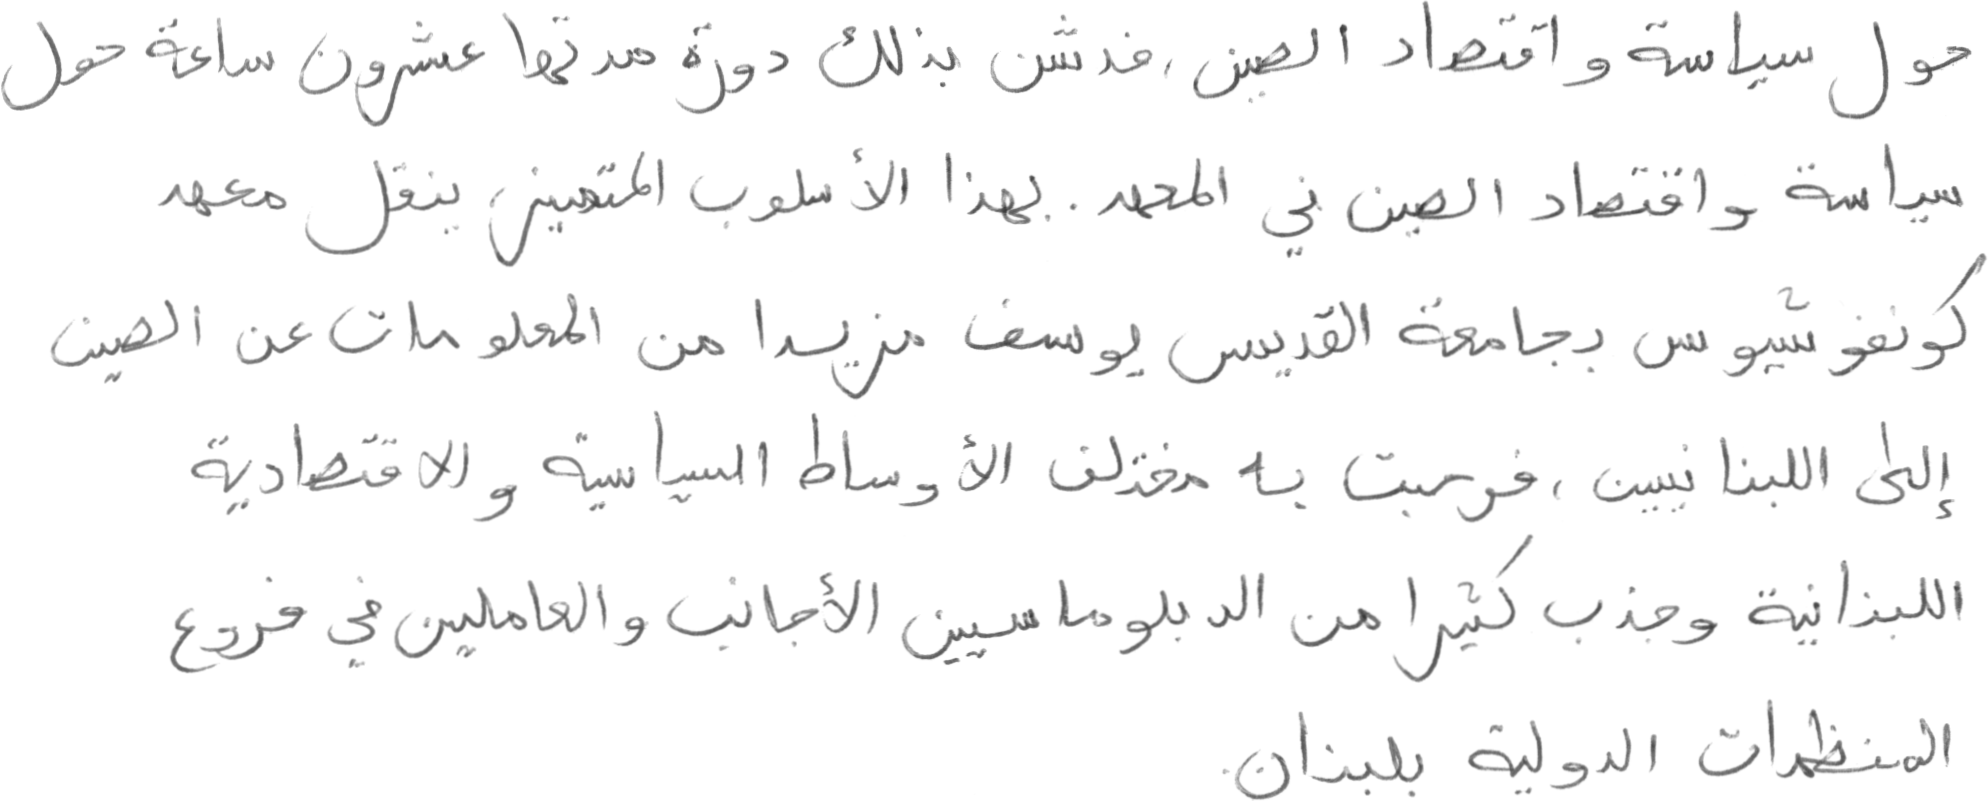 حول سياسة واقتصاد الصين، فدشن بذلك دورة مدتها عشرون ساعة حول
سياسة واقتصاد الصين في المعهد. بهذا الأسلوب المتميز ينقل معهد
كونفوشيوس بجامعة القديس يوسف مزيدا من المعلومات عن الصين
إلى اللبنانيين، فرحبت به مختلف الأوساط السياسية والاقتصادية
اللبنانية وجذب كثيرا من الدبلوماسيين الأجانب والعاملين في فروع
المنظمات الدولية بلبنان.